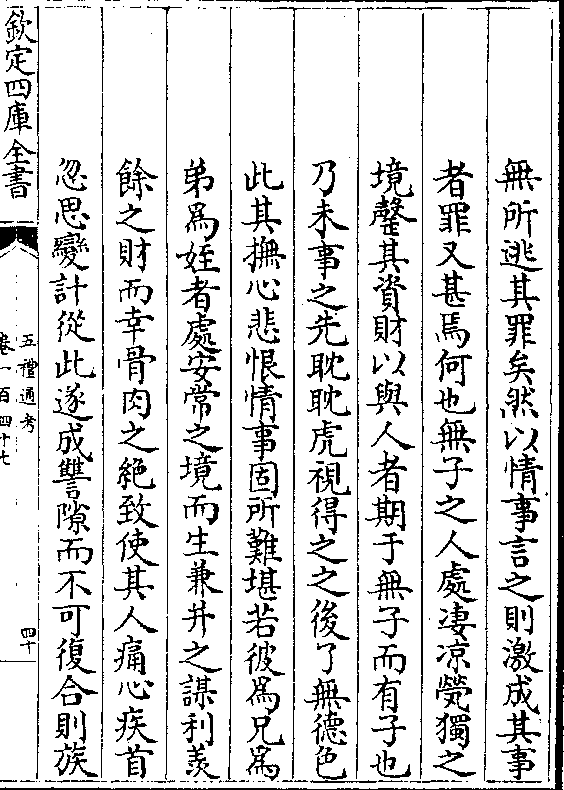 無所逃其罪矣然以情事言之則激成其事
者罪又甚焉何也無子之人處淒凉煢獨之
境罄其資財以與人者期于無子而有子也
乃未事之先眈眈虎視得之之後了無德色
此其撫心悲恨情事固所難堪若彼為兄為
弟為姪者處安常之境而生兼并之謀利羨
餘之財而幸骨肉之絶致使其人痛心疾首
忽思變計從此遂成讐隙而不可復合則族
欽定四庫全書
五禮通考
卷一百四十七
四十